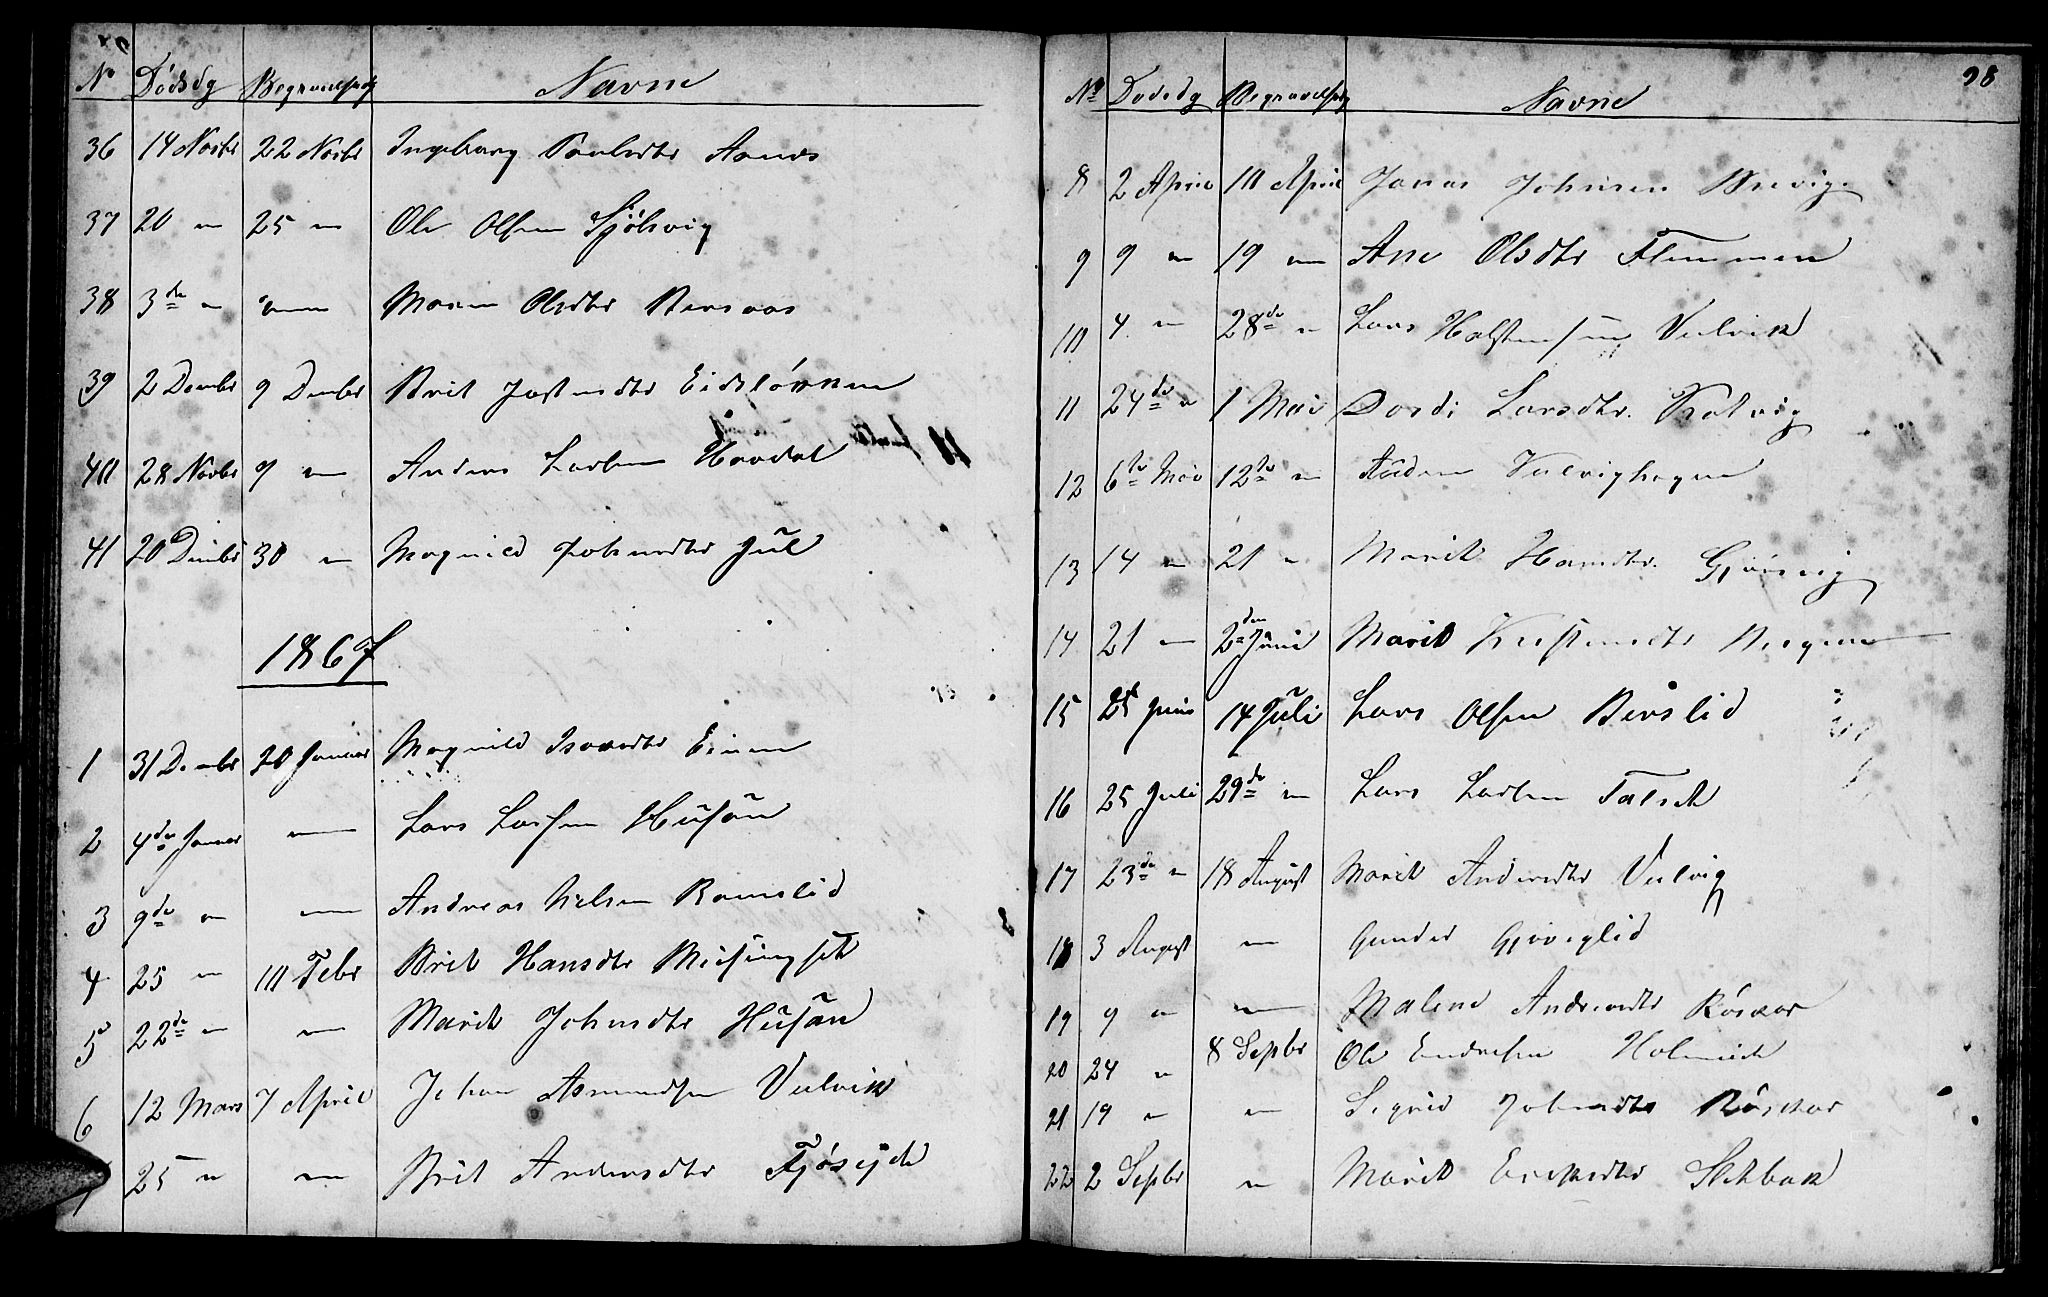 No Dödsdg Begravelsdg Navne
36 14 Novbr 22 Novbr Ingeborg Paulsdtr
37 20 " 25 " Ole Olsen Sjölsvig
38 3de " " Maren Olsdtr Bersaas
39 2 Dember 9 Dember Brit Jostensdtr
40 28 Novbr 9 " Anders Larsen Hovdal
41 20 Dember 30 " Magnild Johnsdtr Jul
1867
1 31 Dember 20 Januar Magnild Isaksdtr
2 4de Januar " Lars Larsen Husan
3 9de " " Andreas Nelsen Ramslid
4 25 " 10 Febr Brit Hansdtr Meisingset
5 22de " " Marit Johnsdtr Husan
6 12 Mars 7 April Johan Asmundsen Vulvik
25 " " Brit Andersdtr
98
No Dödsdg Begravelsdg Navne
8 2 April 10 April Jonas Johnsen Brevig
9 9 " 19 " Ane Olsdtr Flemmen
10 4 " 28de " Lars Halstensen Vulvik
11 24de " 1 Mai Dordi Larsdtr. Kalvig
12 6te Mai 12te " Audun Vulvighagen
13 14 " 21 " Marit Hansdtr. Gjörvig
14 21 " 2den Juni Marit
15 25 Juni 14 Juli Lars Olsen Berslid
16 25 Juli 29de " Lars Larsen Talset
17 23de " 18 August Marit Andersdtr Vulvig
18 3 August " Gunder Gjörviglid
19 9 " " Malene Andersdtr Röskar
20 24 " 8 Sepbr Ole Endresen Holmeide
21 19 " " Sigrid Johnsdtr Röskar
22 2 Sepbr " Marit Eriksdtr Sletbak